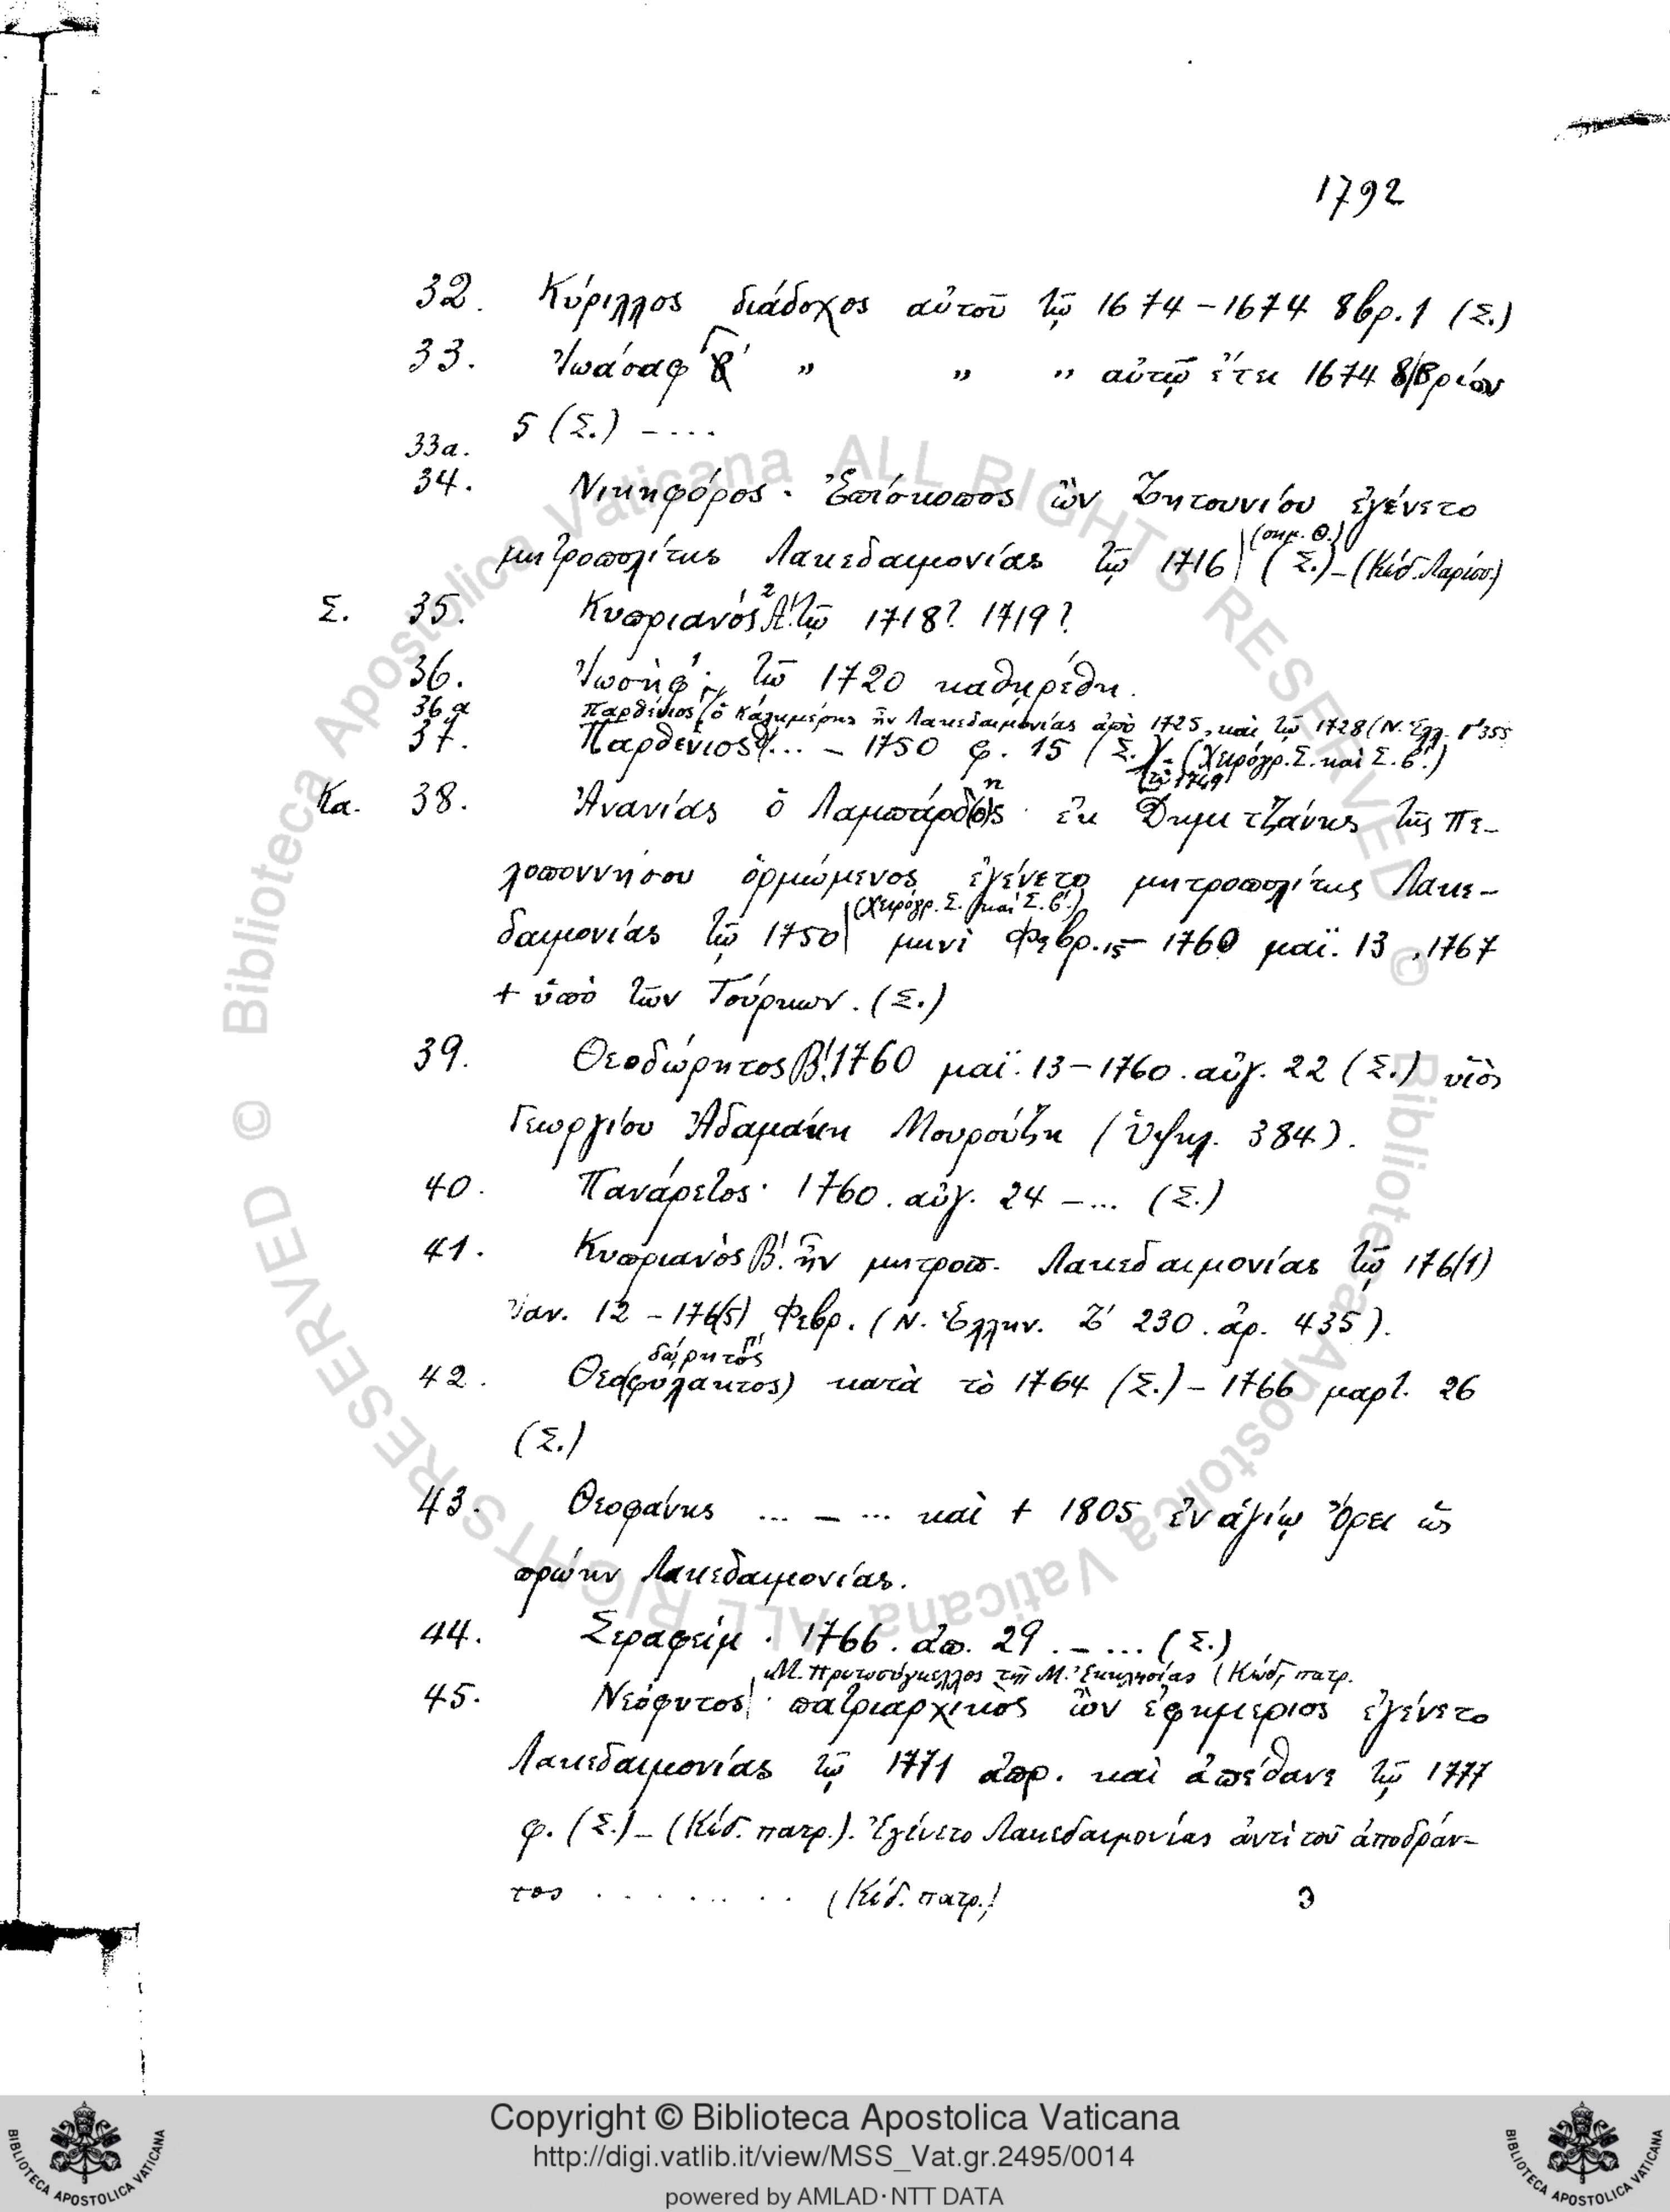 1792
32. Κύριλλος διάδοχος αὐτοῦ τῷ 1674 – 1674 8βρ. 1 (Σ.)
33. Ἰωάσαφ Γ' " " " αὐτῷ ἔτει 1674 8/βρίου
5 (Σ.) – ....
33α.
34. Νικηφόρος · Ἐπίσκοπος ὢν Ζητουνίου ἐγένετο
(σημ. Θ.)
μητροπολίτης Λακεδαιμονίας τῷ 1716 (Σ.) – (Κώδ. Λαρίσσ.)
Σ. 35. Κυπριανός Α'. τῷ 1718? 1719?
36. Ἰωσὴφ · τῷ 1720 καθῃρέθη.
36 α Παρθένιος ὁ Καλημέρης ἦν Λακεδαιμονίας ἀπὸ 1725, καὶ τῷ 1728 (Ν. Ἑλλ. Γ' 355
37. Παρθένιος ... – 1750 φ. 15 (Σ.) – (Χειρόγρ. Σ. καὶ Σ. β'.)
τῷ 1749
Κα. 38. Ἀνανίας ὁ Λαμπάρδ(ο)ης · ἐκ Δημητζάνης τῆς Πε–
λοποννήσου ὁρμώμενος ἐγένετο μητροπολίτης Λακε–
(Χειρόγρ. Σ. καὶ Σ. β'.)
δαιμονίας τῷ 1750 μηνὶ Φεβρ. 15 – 1760 μαΐ. 13, 1767
+ ὑπὸ τῶν Τούρκων. (Σ.)
39. Θεοδώρητος Β'. 1760 μαΐ. 13 – 1760. αὐγ. 22 (Σ.) υἱὸς
Γεωργίου Ἀδαμάκη Μουρούζη (Ὑψηλ. 384).
40. Πανάρετος · 1760. αὐγ. 24 – ... (Σ.)
41. Κυπριανὸς Β'. ἦν μητροπ. Λακεδαιμονίας τῷ 176(1)
Ἰαν. 12 – 176(5) Φεβρ. (Ν. Ἑλλην. Ζ' 230. ἀρ. 435).
δώρητος Γ'
42. Θεο(φύλακτος) κατὰ τὸ 1764 (Σ.) – 1766 μαρτ. 26
(Σ.)
43. Θεοφάνης ... – ... καὶ + 1805 ἐν ἁγίῳ Ὄρει ὡς
πρώην Λακεδαιμονίας.
44. Σεραφείμ · 1766. ἀπ. 29. – ... (Σ.)
Μ. Πρωτοσύγκελλος τῆς Μ. Ἐκκλησίας (Κώδ. πατρ.
45. Νεόφυτος · πατριαρχικὸς ὢν ἐφημέριος ἐγένετο
Λακεδαιμονίας τῷ 1771 ἀπρ. καὶ ἀπέθανε τῷ 1777
φ. (Σ.) – (Κώδ. πατρ.). Ἐγένετο Λακεδαιμονίας ἀντὶ τοῦ ἀποδράν–
τος . . . . . . . (Κώδ. πατρ.)
3
© Biblioteca Apostolica Vaticana ALL RIGHTS RESERVED
© Biblioteca Apostolica Vaticana ALL RIGHTS RESERVED
Copyright © Biblioteca Apostolica Vaticana
http://digi.vatlib.it/view/MSS_Vat.gr.2495/0014
powered by AMLAD·NTT DATA
BIBLIOTECA APOSTOLICA VATICANA
BIBLIOTECA APOSTOLICA VATICANA